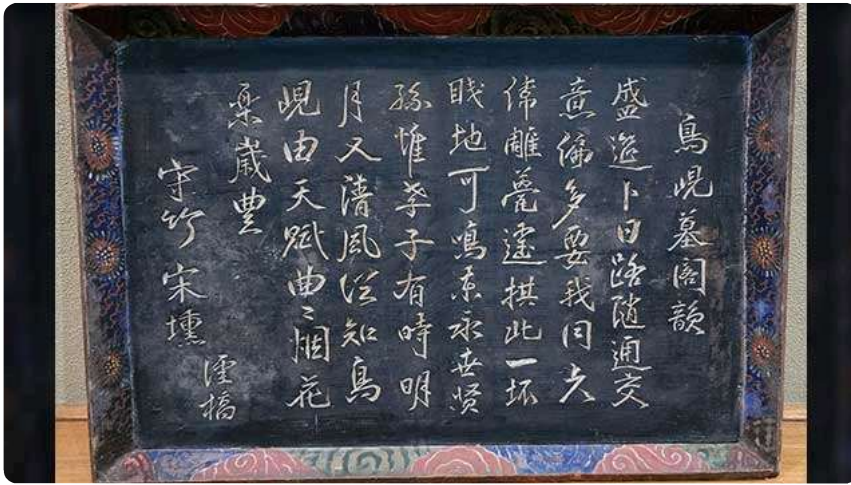 鳥峴墓閣韻
盛筵卜日路隨通交
意偏多要我同
偉雕甍遠拱此一坏
賤地可鳴東永世賢
孫惟孝子有時明
月又清風從知鳥
峴由天賦曲〻烟花
樂歲豊
守竹 宋壎
謹稿